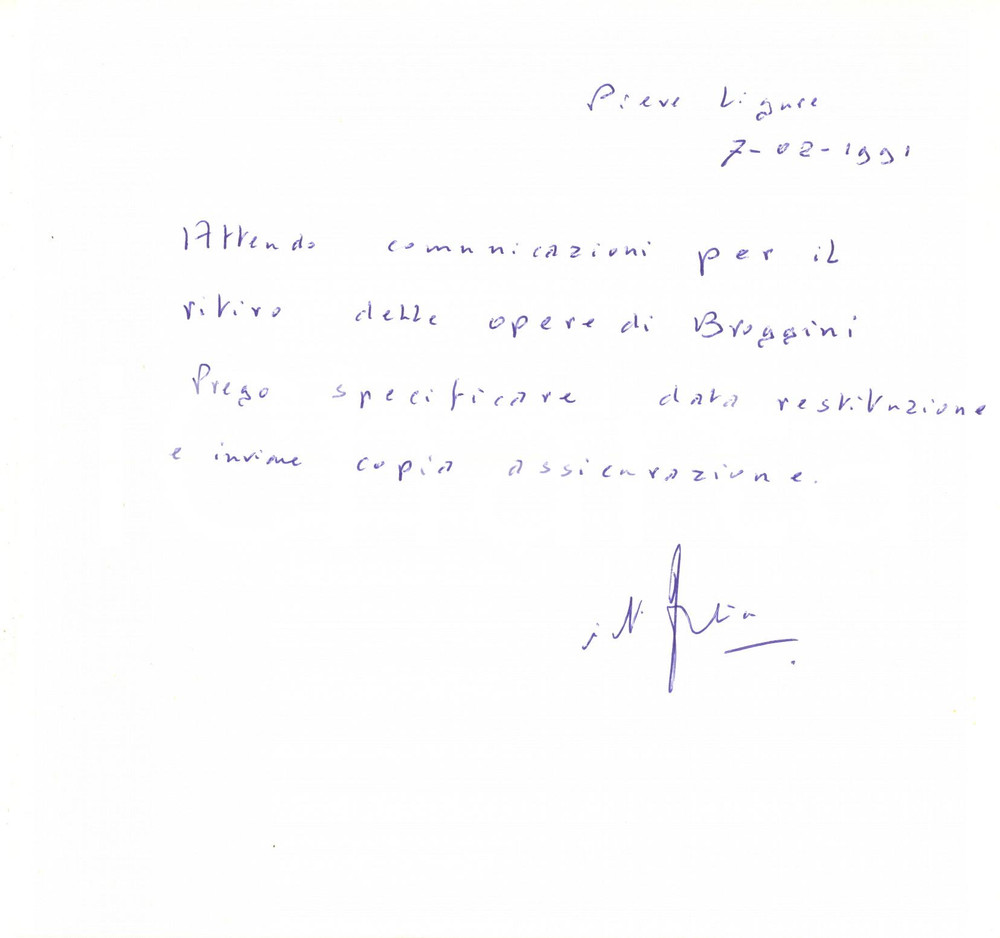 Pieve Ligure
7-02-1991
Attendo comunicazioni per il
ritiro delle opere di Broggini
Prego specificare data restituzione
e inviare copia assicurazione.